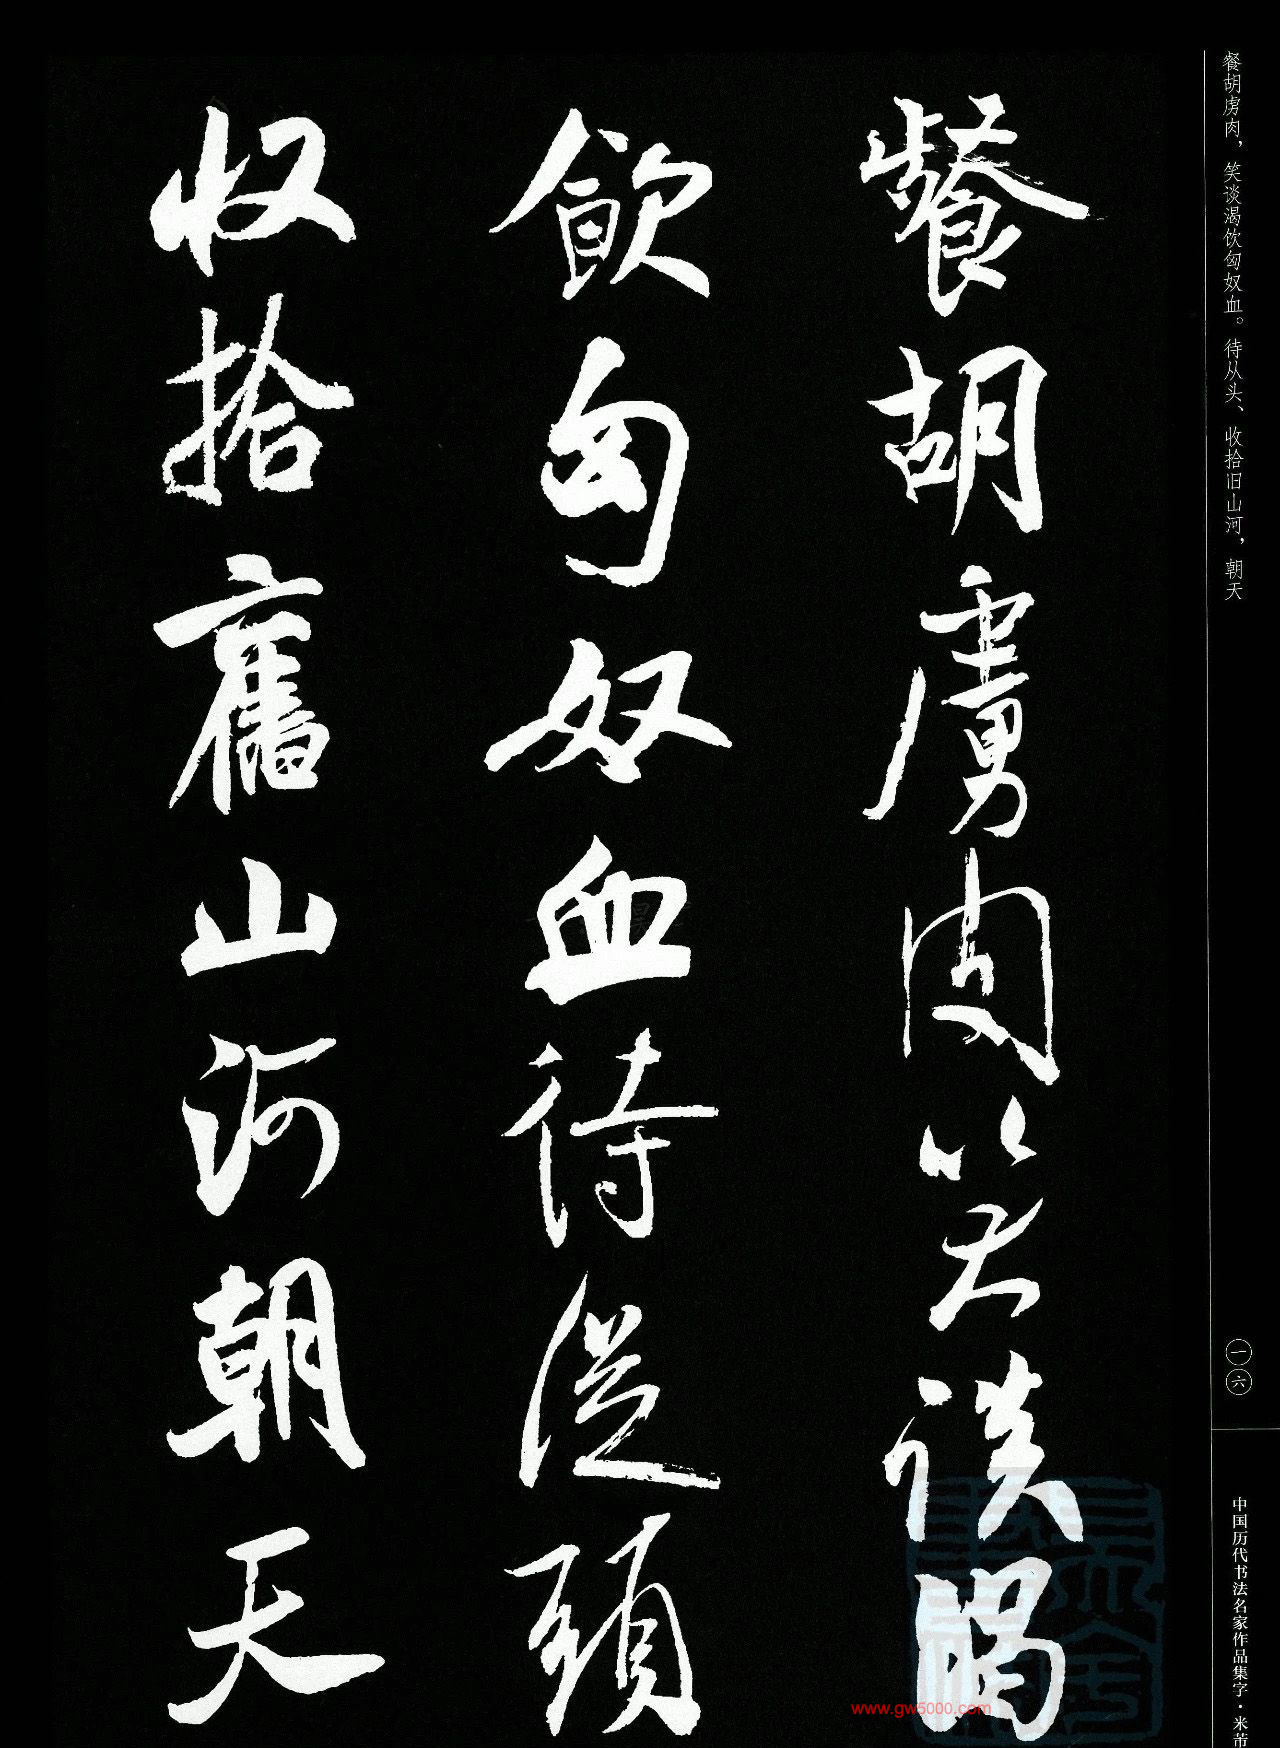 餐胡虏肉，笑谈渴饮匈奴血。待从头、收拾旧山河，朝天
一六
中国历代书法名家作品集字·米芾
餐胡虜肉笑談渴
飲匈奴血待從頭
収拾舊山河朝天
www.gw5000.com